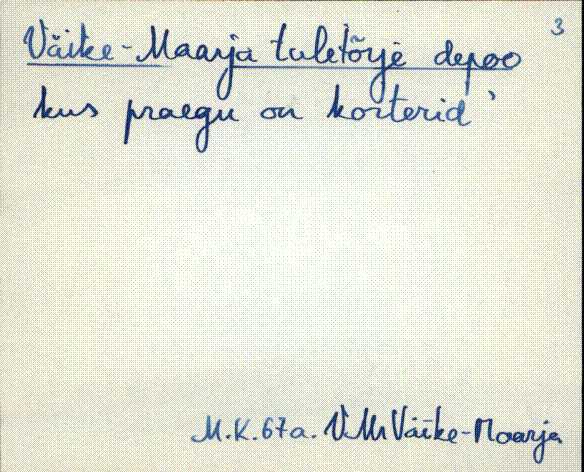 3
Väike-Maarja tuletõrje depoo
kus praegu on korterid
M.K. 67a. VM Väike-Maarja